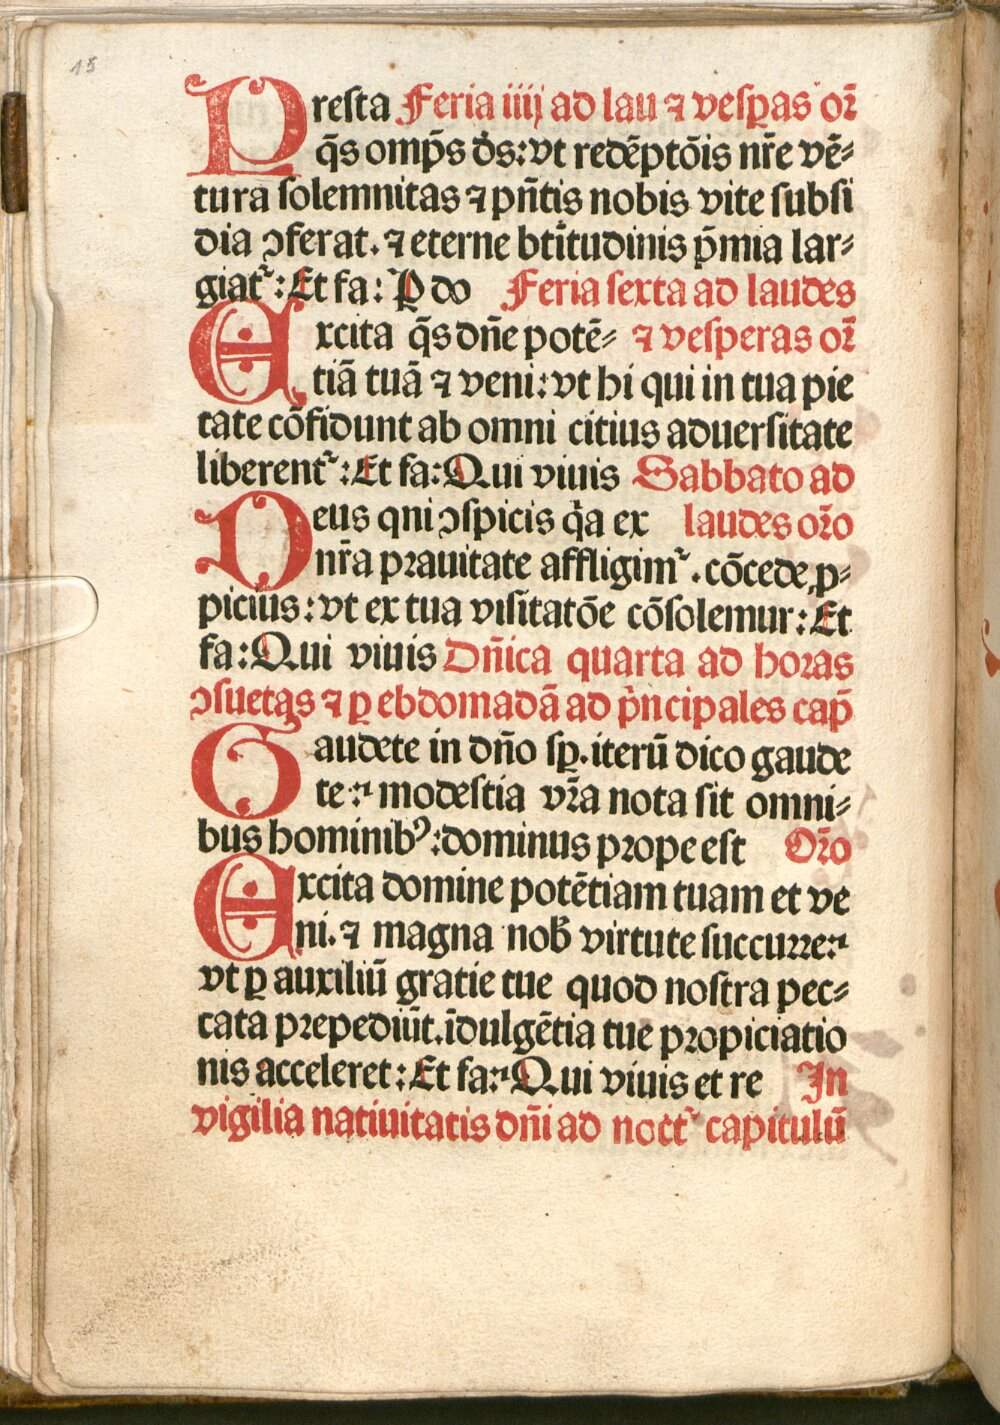 15
Presta Feria iiij ad lau ⁊ vesꝑas or̃
q̃s omp̃s d̃s: vt redẽptõis nr̃e vẽ⸗
tura solemnitas ⁊ pñtis nobis vite subsi
dia ꝯferat. ⁊ eterne bti̇̃tudinis p̃mia lar⸗
giat᷑: Et fa: P̲ do Feria sexta ad laudes
Excita q̃s dñe potẽ⸗ ⁊ vesperas or̃
tiã tuã ⁊ veni: vt hi qui in tua pie
tate cõfidunt ab omni citius aduersitate
liberent᷑: Et fa: Qui viuis Sabbato ad
Deus qni ꝯspicis q̃a ex laudes or̃o
nr̃a prauitate affligim᷑. cõcede ꝓ⸗
picius: vt ex tua visitatõe cõsolemur: Et
fa: Qui viuis Dñica quarta ad horas
ꝯsuetas ⁊ ꝑ ebdomadã ad p̃ncipales cap̃
Gaudete in dño sꝑ. iterũ dico gaude
te: ⁊ modestia vr̃a nota sit omni⸗
bus hominibꝰ: dominus prope est Or̃o
Excita domine potẽtiam tuam et ve
ni. ⁊ magna nob̃ virtute succurre: ⁊
vt ꝑ auxiliũ gratie tue quod nostra pec⸗
cata prepediũt. ĩdulgẽtia tue propiciatio
nis acceleret: Et fa: Qui viuis et re In
vigilia natiuitatis dñi ad noct᷑ capitulũ